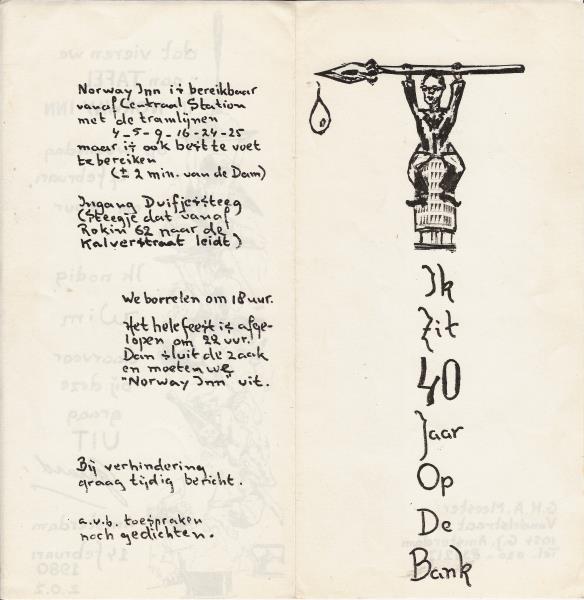 Norway Inn is bereikbaar
vanaf Centraal Station
met de tramlijnen
4-5-9-16-24-25
maar is ook best te voet
te bereiken
(± 2 min. van de Dam)
Ingang Duifjessteeg
(steegje dat vanaf
Rokin 62 naar de
Kalverstraat leidt)
We borrelen om 18 uur.
Het hele feest is afge-
lopen om 22 uur.
Dan sluit de zaak
en moeten we
"Norway Inn" uit.
Bij verhindering
graag tijdig bericht.
a.u.b. toespraken
noch gedichten.
Ik
Zit
40
Jaar
Op
De
Bank